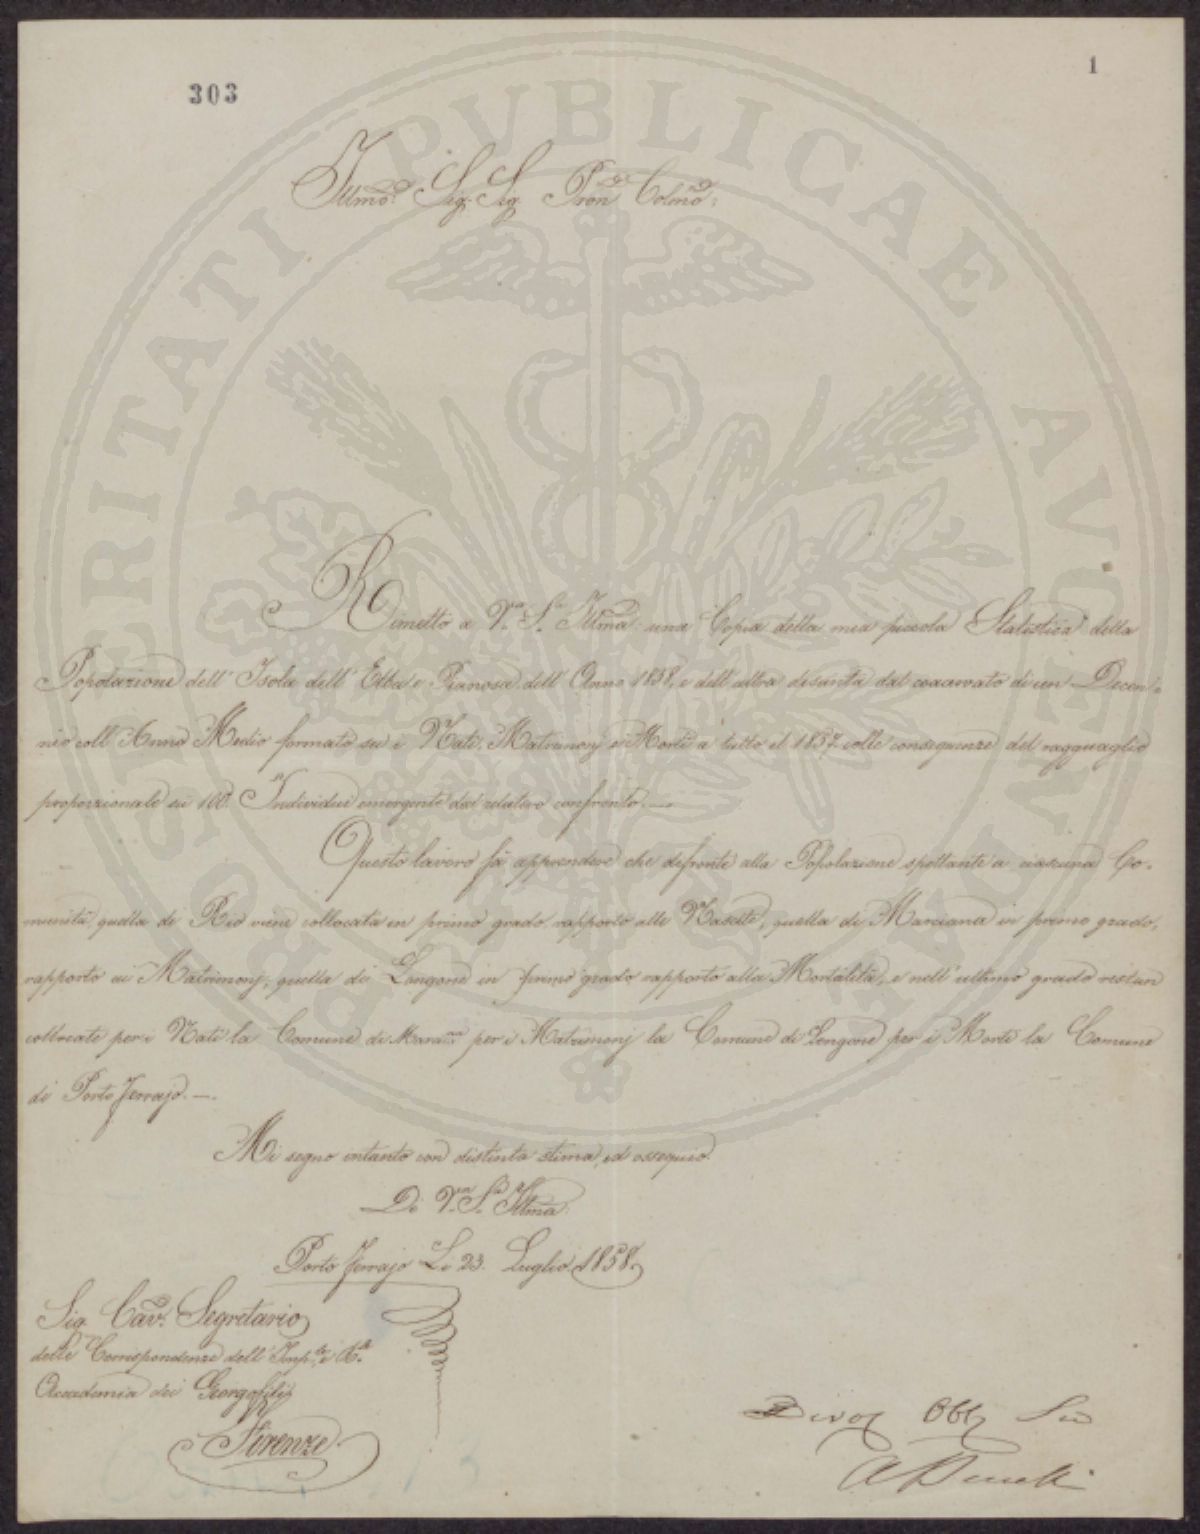 303
1
Illmo. Sig. Sig. Pron. Colmo:
Rimetto a Va. Sa. Illma: una Copia della mia piccola Statistica della
Popolazione dell' Isola dell' Elba e Pianosa dell' Anno 1858, e dell' altra desunta dal coacervato di un Decen-
nio coll' Anno Medio formato su i Nati, Matrimonj e Morti a tutto il 1857 colle conseguenze del ragguaglio
proporzionale su 100. Individui emergente dal relativo confronto.—
Questo lavoro fà apprendere che difronte alla Popolazione spettante a ciascuna Co-
munità, quella di Rio viene collocata in primo grado, rapporto alle Nascite, quella di Marciana in primo grado,
rapporto ai Matrimonj, quella di Longone in primo grado, rapporto alla Mortalità, e nell' ultimo grado restan
collocate per i Nati la Comune di Marcna per i Matrimonj la Comune di Longone per i Morti la Comune
di Porto Ferrajo.—.
Mi segno intanto con distinta stima, ed ossequio.
Di Va. Sa. Illma:
Porto Ferrajo Li 23. Luglio 1858.
Sig. Cav. Segretario
delle Corrispondenze dell' Imple. e Rle.
Accademia dei Georgofili
Firenze
Devo Obb Se
PROSPERITATI PVBLICAE AVGENDAE